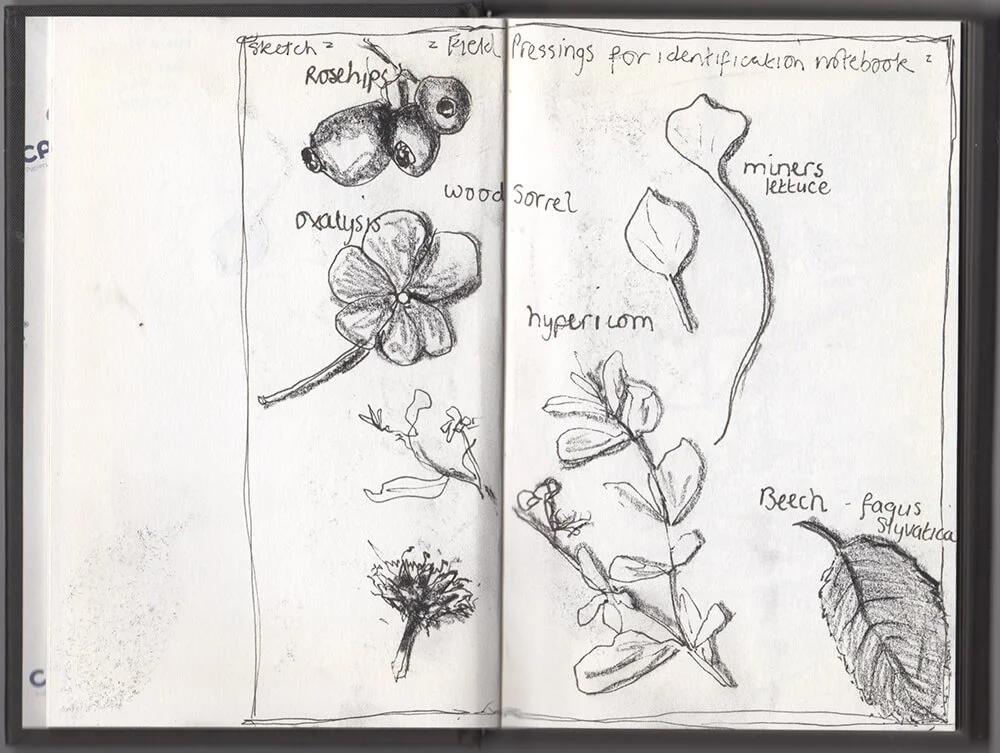 Sketch = = Field Pressings for identification notebook =
Rosehips
miners
lettuce
wood sorrel
oxalysis
hypericom
Beech - fagus
Slyvatica